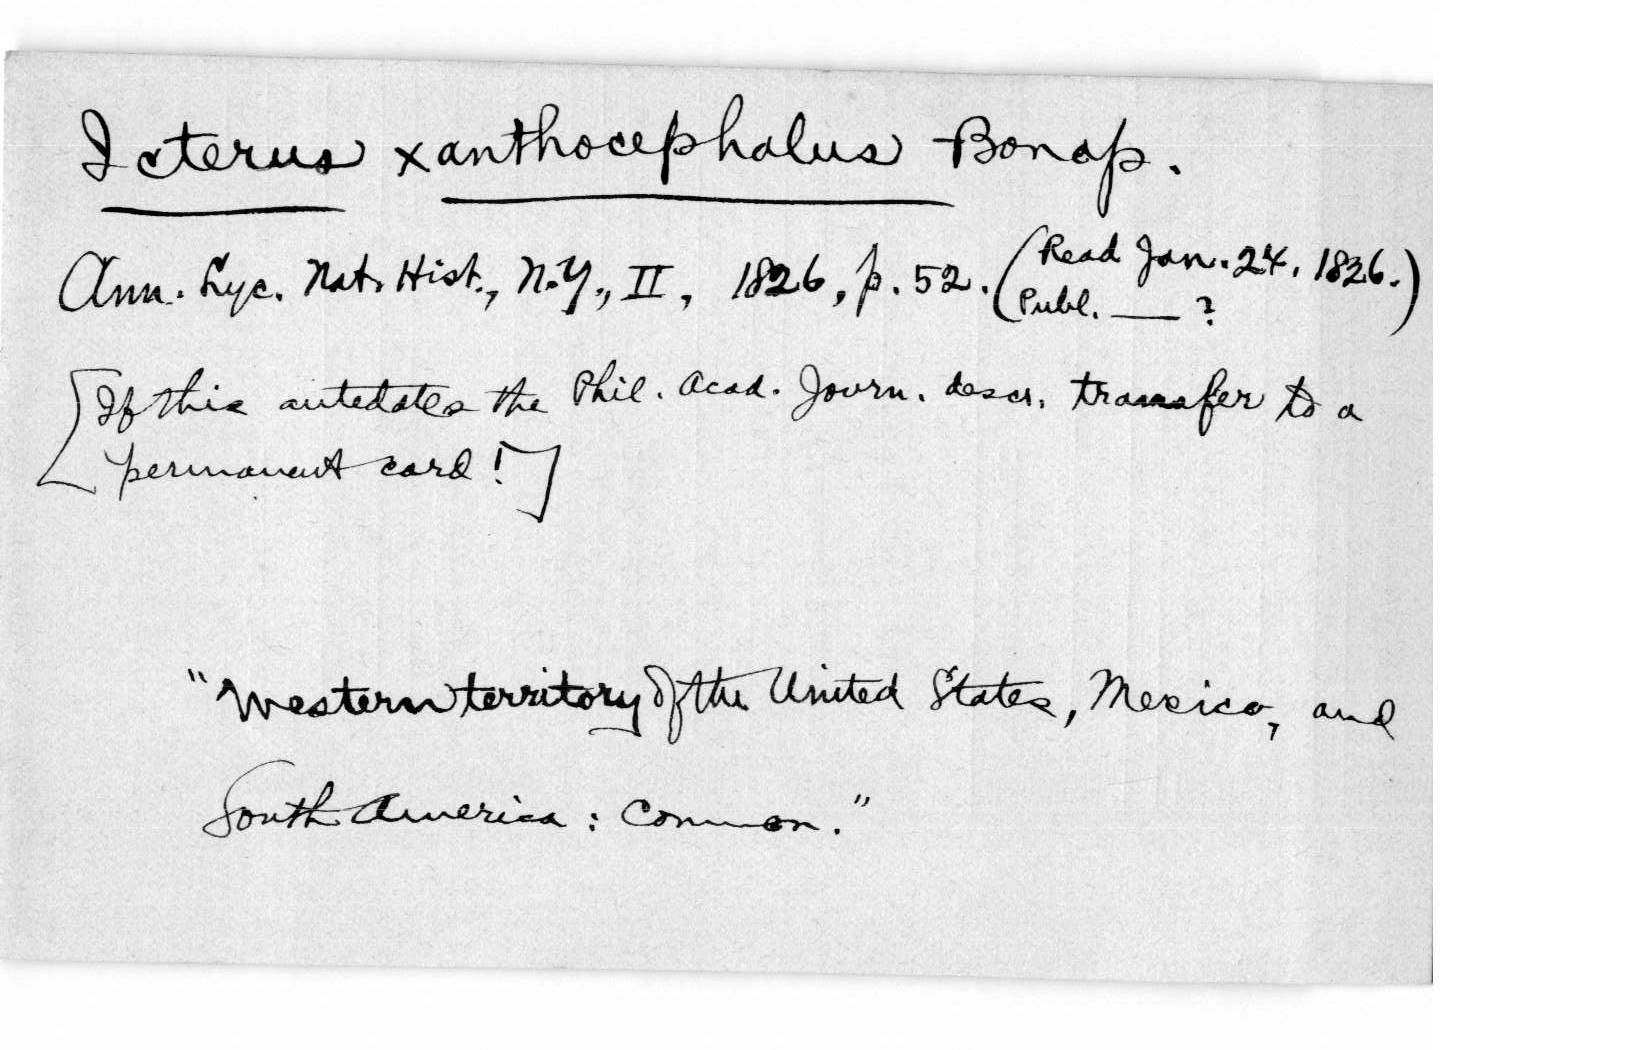 Icterus xanthocephalus Bonap.
Ann. Lyc. Nat. Hist., N.Y., II, 1826, p. 52. (Read Jan. 24, 1826.)
Publ. — ?
[If this antedates the Phil. Acad. Journ. descr. transfer to a
permanent card!]
"Western territory of the United States, Mexico, and
South America: common."